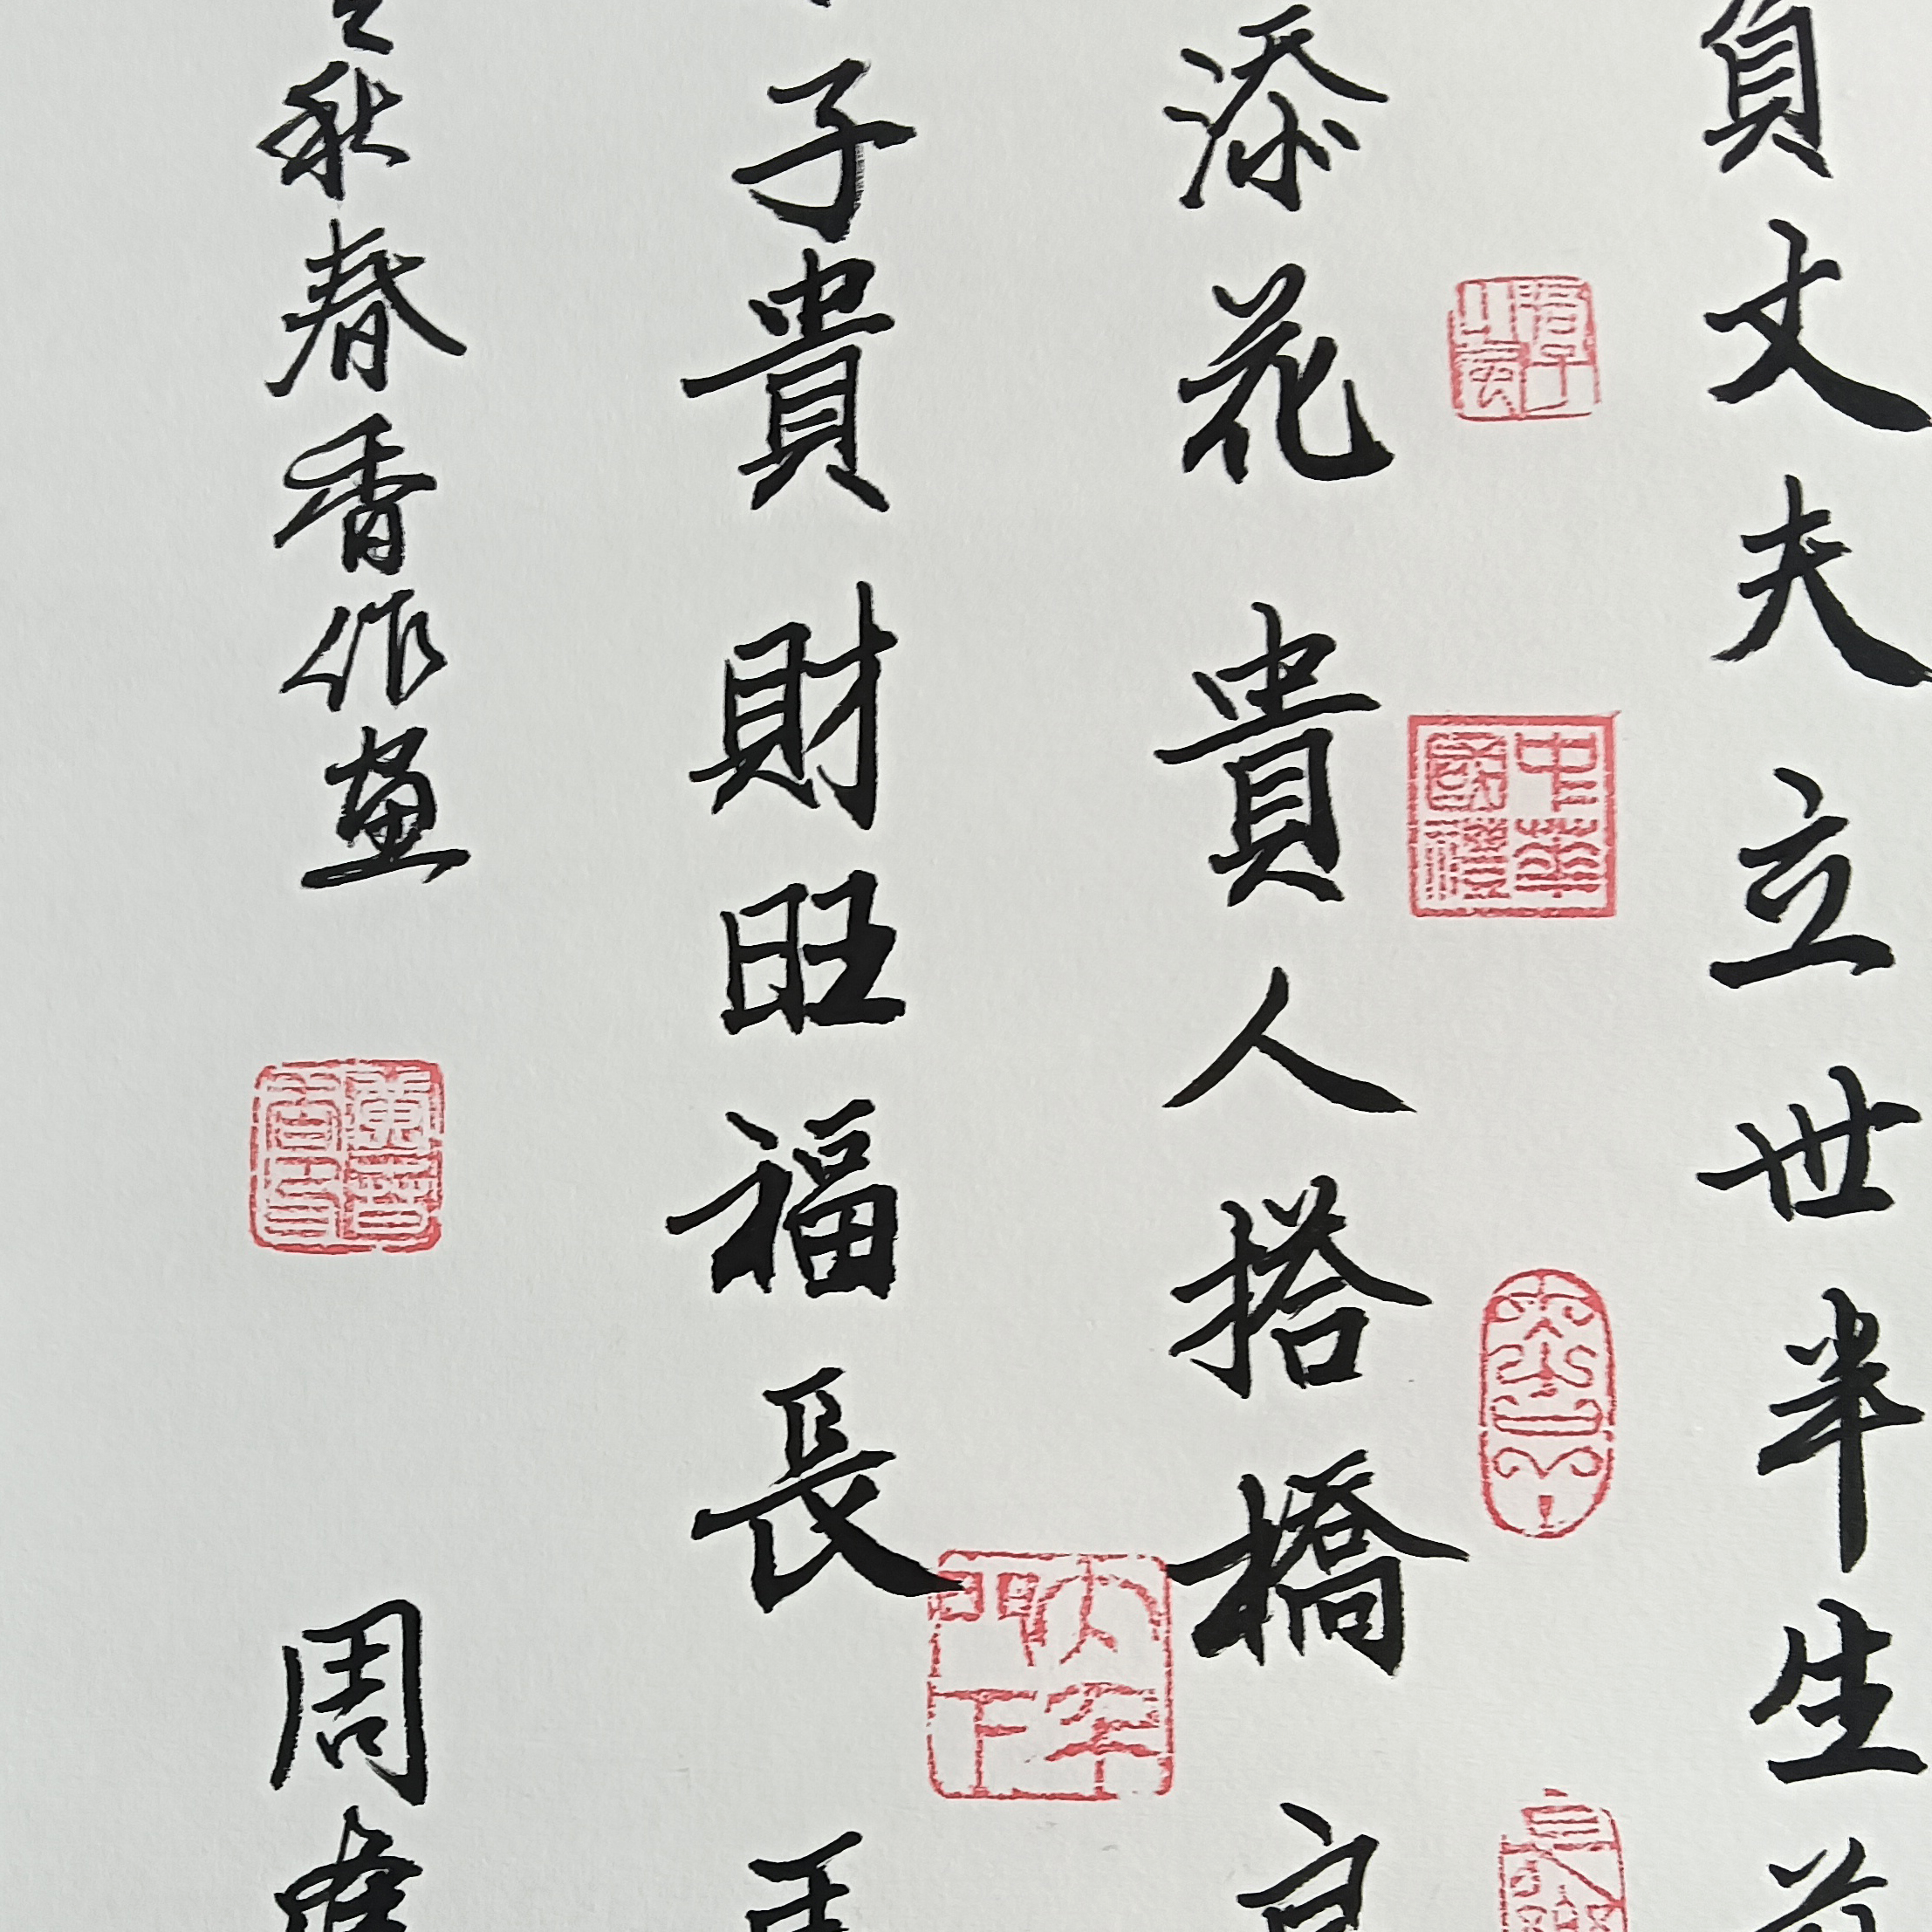 負丈夫立世半生
添花貴人搭橋
子貴財旺福長
秋春香作画
周
中華國禮